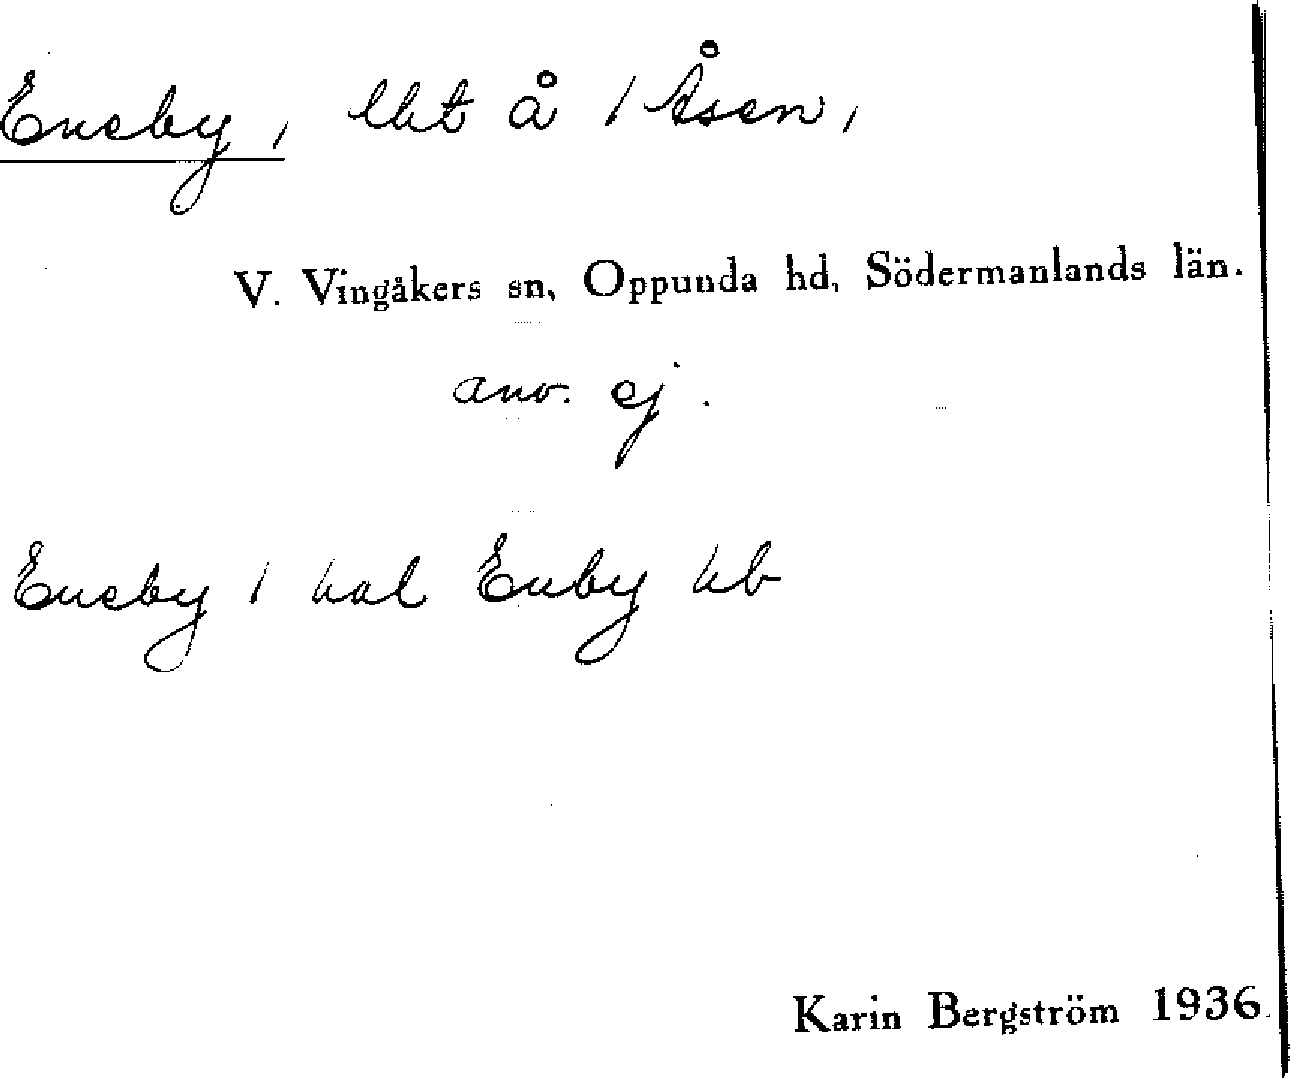 Eneby, lht å 1 Åsen,
V. Vingåkers sn, Oppunda hd, Södermanlands län.
anv. ej.
Eneby 1 hal Enby hb
Karin Bergström 1936.